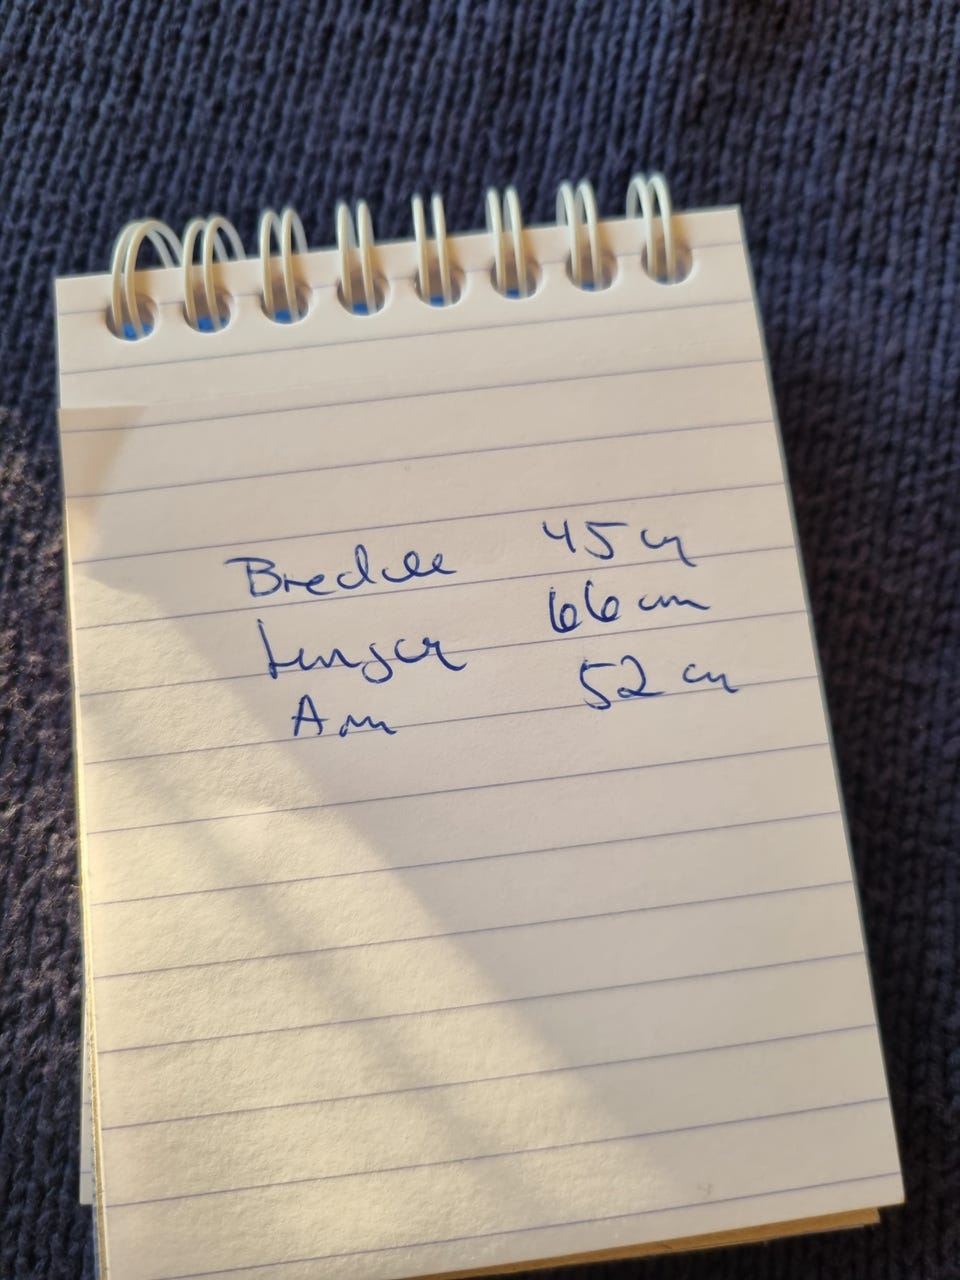 Bredde 45 cm
Lengde 66 cm
Arm 52 cm